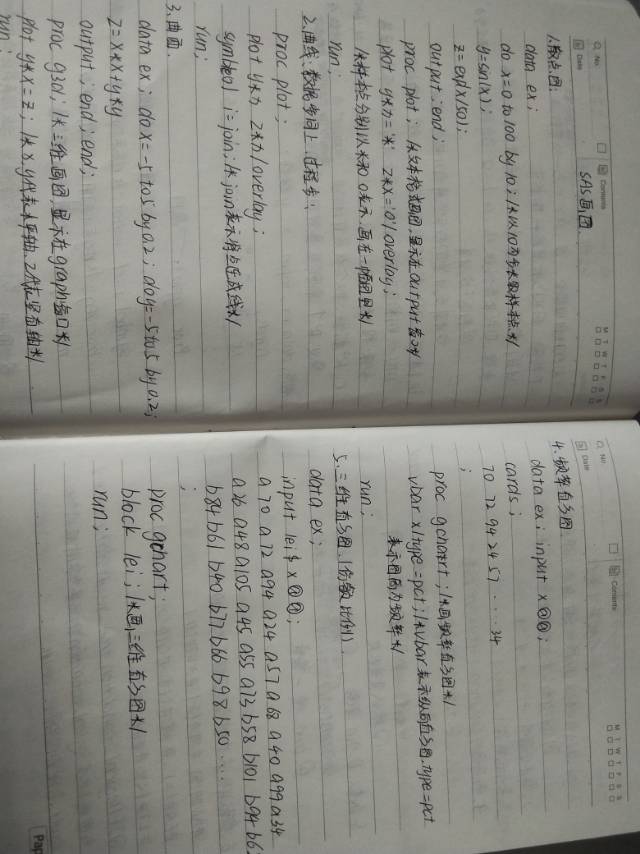 No.
Date
Contents
M T W T F S S
SAS画图
1.散点图:
data ex;
do x=0 to 100 by 10; /*以10为步长取样本点*/
y=sin(x);
z=exp(x/50);
output; end;
proc plot; /*以文本格式画图,显示在output窗口*/
plot y*x='*' z*x='0'/overlay;
/*样本点分别以*和0表示,画在一幅图里*/
run;
2.曲线,数据步同上,过程步:
proc plot;
plot y*x z*x/overlay;
symbol i=join; /*join表示将点连成线*/
run;
3.曲面.
data ex; do x=-5 to 5 by 0.2; do y=-5 to 5 by 0.2;
z=x*x+y*y
output; end; end;
proc g3d; /*三维画图,显示在graph窗口*/
plot y*x=z; /*x,y代表水平轴,z代表竖直轴*/
run;
No.
Date
Contents
M T W T F S S
4.频率直方图
data ex; input x@@;
cards;
70 72 94 24 57 ..... 34
;
proc gchart; /*画频率直方图*/
vbar x/type=pct; /*vbar表示纵向直方图,type=pct
表示图面为频率*/
run;
5.三维直方图(分数,比例)
data ex;
input lei $ x @@;
a 70 a 72 a94 a24 a57 a68 a40 a99 a34
a26 a48 a105 a45 a55 a73 b58 b101 b84 b6
b84 b61 b40 b71 b66 b98 b50 .....
;
proc gchart;
block lei; /*画三维直方图*/
run;
Pap